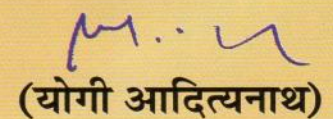 (योगी आदित्यनाथ)